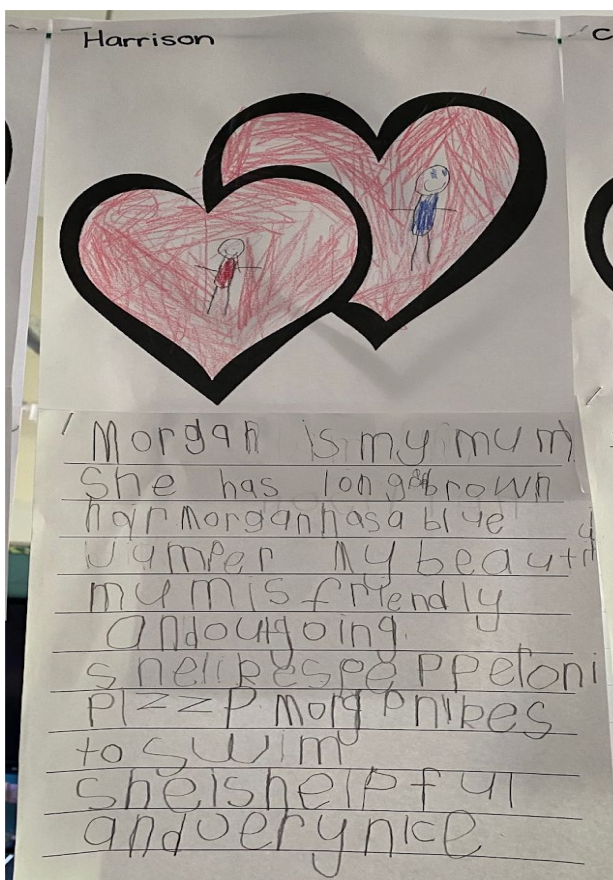 Harrison
C
Morgan is my mum
She has long brown
hair morgan has a blue
Jumper My beauti
mum is friendly
and outgoing.
she likes pepperoni
pizza. morgan likes
to swim
she is helpful
and very nice